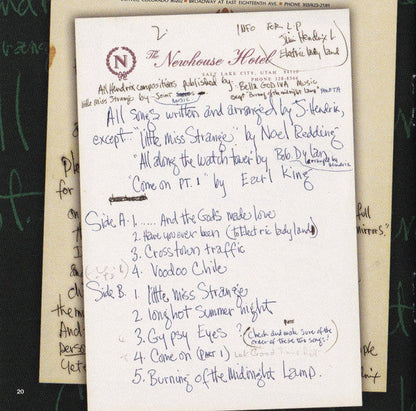 DENVER, COLORADO 80202 • BROADWAY AT EAST EIGHTEENTH AVE. • PHONE 303/623-2181
2.
INFO FOR L.P
Jimi Hendrix
Electric lady land
N
The Newhouse Hotel
SALT LAKE CITY, UTAH 84110
PHONE 328-
All Hendrix compositions published by: Bella GODIVA MUSIC
little Miss Strange by MUSIC
except Burning of the midnight Lamp
All songs written and arranged by J. Hendrix,
except.. "little miss Strange" by Noel Redding
"All along the watch tower" by Bob Dylan
arranged by Hendrix
"Come on PT. 1" by Earl King
Side A: 1...... And the Gods made love
2. Have you ever been (to Electric lady land)
3. Crosstown traffic
4. Voodoo Chile
Side B. 1. little, miss Strange
2. longhot Summer night
3. Gypsy Eyes ?
(Check and make sure of the order of these two songs!)
4. Come on (PART 1)
5. Burning of the Midnight Lamp.
for
full
mirrors."
the m
And
perso
20